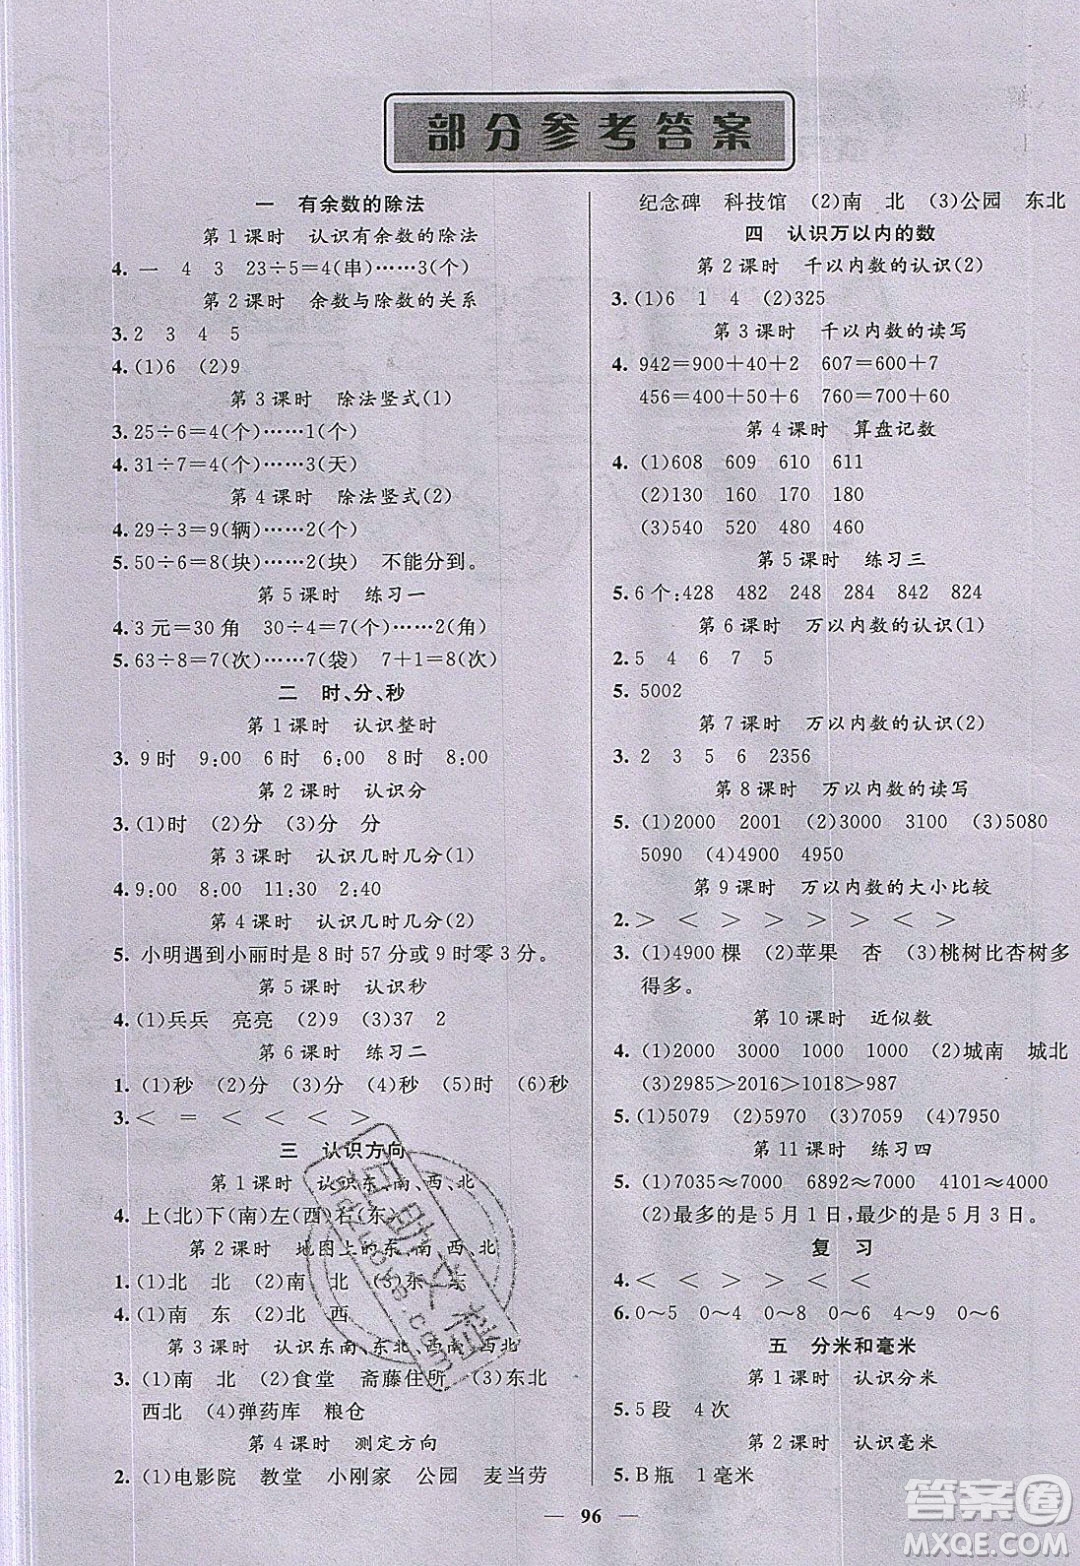 部分参考答案
一 有余数的除法
第1课时 认识有余数的除法
4. 一 4 3 23÷5=4(串)……3(个)
第2课时 余数与除数的关系
3. 2 3 4 5
4. (1)6 (2)9
第3课时 除法竖式(1)
3. 25÷6=4(个)……1(个)
4. 31÷7=4(个)……3(天)
第4课时 除法竖式(2)
4. 29÷3=9(辆)……2(个)
5. 50÷6=8(块)……2(块) 不能分到。
第5课时 练习一
4. 3元=30角 30÷4=7(个)……2(角)
5. 63÷8=7(次)……7(袋) 7+1=8(次)
二 时、分、秒
第1课时 认识整时
3. 9时 9:00 6:00 8时 8:00
第2课时 认识分
3. (1)时 (2)分 (3)分 分
第3课时 认识几时几分(1)
4. 9:00 8:00 11:30 2:40
第4课时 认识几时几分(2)
5. 小明遇到小丽时是8时57分或9时零3分。
第5课时 认识秒
4. (1)兵兵 亮亮 (2)9 (3)37 2
第6课时 练习二
1. (1)秒 (2)分 (3)分 (4)秒 (5)时 (6)秒
3. < = < < < >
三 认识方向
第1课时 认识东、南、西、北
4. 上(北)下(南)左(西)右(东)
第2课时 地图上的东、南、西、北
1. (1)北 北 (2)南 北 (3)东 东
4. (1)南 东 (2)北 西
第3课时 认识东南、东北、西南、西北
3. (1)南 北 (2)食堂 斋藤住所 (3)东北
西北 (4)弹药库 粮仓
第4课时 测定方向
2. (1)电影院 教堂 小刚家 公园 麦当劳
纪念碑 科技馆 (2)南 北 (3)公园 东北
四 认识万以内的数
第2课时 千以内数的认识(2)
3. (1)6 1 4 (2)325
第3课时 千以内数的读写
4. 942=900+40+2 607=600+7
456=400+50+6 760=700+60
第4课时 算盘记数
4. (1)608 609 610 611
(2)130 160 170 180
(3)540 520 480 460
第5课时 练习三
5. 6个:428 482 248 284 842 824
第6课时 万以内数的认识(1)
2. 5 4 6 7 5
5. 5002
第7课时 万以内数的认识(2)
3. 2 3 5 6 2356
第8课时 万以内数的读写
5. (1)2000 2001 (2)3000 4000 (3)5080
5090 (4)4900 4950
第9课时 万以内数的大小比较
2. > < < > > < < >
3. (1)4900棵 (2)苹果 杏 (3)桃树比杏树多
得多。
第10课时 近似数
4. (1)2000 3000 1000 1000 (2)城南 城北
(3)2985>2016>1018>987
5. (1)5079 (2)5970 (3)7059 (4)7950
第11课时 练习四
5. (1)7035≈7000 6892≈7000 4101≈4000
(2)最多的是5月1日,最少的是5月3日。
复习
4. < < > > < < <
6. 0～5 0～4 0～8 0～6 4～9 0～6
五 分米和毫米
第1课时 认识分米
5. 5段 4次
第2课时 认识毫米
5. B瓶 1毫米
96
答案圈
MXQE.COM